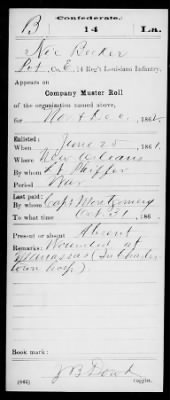 Confederate.
B 14 La.
Nic Becker
Pvt, Co. E, 14 Reg't Louisiana Infantry.
Appears on
Company Muster Roll
of the organization named above,
for Nov & Dec, 186
Enlisted:
When June 25, 1861.
Where New Orleans
By whom Lt Pfiffer
Period War
Last paid:
By whom Capt Montgomery
To what time Oct 31, 186
Present or absent Absent
Remarks: Wounded at
Manassas (In Charles-
town hosp).
Book mark:
J B Dowd
(642) Copyist.